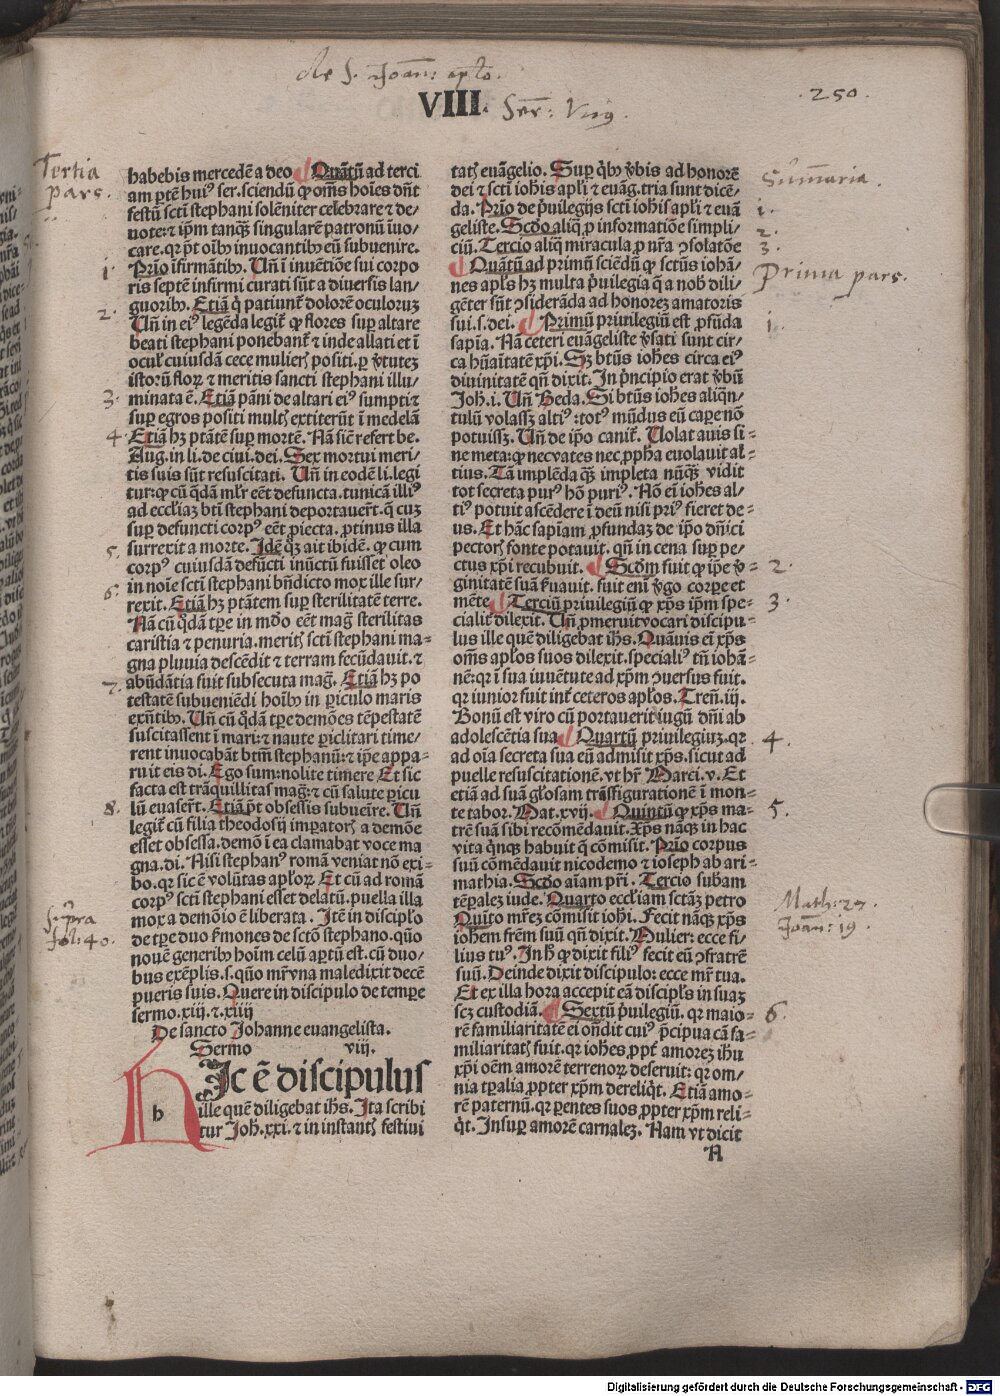 de S. Joan: aplo.
VIII.
.250.
Tertia
pars.
habebis mercedē a deo Quātū ad terci
am ptē huiꝰ ser. sciendū ꝙ om̄s hoīes dn̄t
festū scti stephani solēniter celebrare ⁊ de⸗
uote: ⁊ ip̄m tanqꝫ singularē patronū īuo⸗
care. qr pn̄t oībꝰ inuocantibꝰ eū subuenire.
1. Prīo īfirmātibꝰ. Un̄ ī inuētiōe sui corpo
ris septē infirmi curati sūt a diuersis lan⸗
2. guoribꝰ. Etiā q̄ patiunt̄ dolorē oculoruꝫ
Un̄ in eiꝰ legēda legit̄ ꝙ flores suꝑ altare
beati stephani ponebant̄ ⁊ inde allati et ī
ocul' cuiusdā cece mulierꝭ positi. ꝑ v̄tuteꝫ
istorū floꝝ ⁊ meritis sancti stephani illu⸗
3. minata ē. Etiā pāni de altari eiꝰ sumpti ⁊
suꝑ egros positi multꝭ extiterūt ī medelā
4. Etiā hꝫ ptātē suꝑ mortē. Nā siē refert be.
Aug. in li. de ciui. dei. Sex mortui meri⸗
tis suis sūt resuscitati. Un̄ in eodē li. legi
tur: ꝙ cū q̄dā ml'r eēt defuncta. tunicā illiꝰ
ad eccl'iaꝫ bt̄i stephani deportauerūt. q̄ cuꝫ
suꝑ defuncti corpꝰ eēt ꝓiecta. ꝓtinus illa
5. surrexit a morte. Idē qꝫ ait ibidē. ꝙ cum
corpꝰ cuiusdā defūcti inūctū fuisset oleo
6. in noīe scti stephani bn̄dicto mox ille sur⸗
rexit. Etiā hꝫ ptātem suꝑ sterilitatē terre.
Nā cū q̄dā tꝑe in mōo eēt maḡ sterilitas
caristia ⁊ penuria. meritꝭ scti stephani ma⸗
gna pluuia descēdit ⁊ terram fecūdauit. ⁊
7. abūdātia fuit subsecuta maḡ. Etiā hꝫ po
testatē subueniēdi hoībꝰ in ꝑiculo maris
exn̄tibꝰ. Un̄ cū q̄dā tꝑe demōes tēpestatē
suscitassent ī mari: ⁊ naute ꝑiclitari time⸗
rent inuocabāt btm̄ stephanū: ⁊ ip̄e appa⸗
ruit eis dī. Ego sum: nolite timere Et sic
facta est trāquillitas maḡ: ⁊ cū salute ꝑicu
8. lū euaserūt. Etiā pōt obsessis subuenire. Un̄
legit̄ cū filia theodosij imꝑatorꝭ a demōe
esset obsessa. demō ī ea clamabat voce ma
gna. dī. Nisi stephanꝰ romā veniat nō exi⸗
bo. qr sic ē volūtas aploꝝ. Et cū ad romā
corpꝰ scti stephani esset delatū. puella illa
mox a demōio ē liberata. Itē in discipl'o
de tꝑe duo sermōes de sctō stephano. quō
nouē generibꝰ hoīm celū aꝑtū est. cū duo⸗
bus exēplis. s. quō mr̄ vna maledixit decē
pueris suis. Quere in discipulo de tempe
sermo. xiij. ⁊ xiiij
fol: 40.
De sancto Johanne euangelista.
Sermo viij.
HIc ē discipulus
ille quē diligebat ihs. Ita scribi
tur Joh. xxi. ⁊ in instantꝭ festiui
tatꝭ euāgelio. Suꝑ qꝰbꝰ v̄bis ad honorē
dei ⁊ scti iohīs apl'i ⁊ euāg. tria sunt dicē⸗
da. Prīo de p̄uilegijs scti iohīs apl'i ⁊ euā
geliste. Scdo aliq̄ ꝓ informatiōe simpli⸗
ciū. Tercio aliq̄ miracula ꝓ nr̄a ꝯsolatōe
Quātū ad primū sciēdū ꝙ sctūs iohā⸗
nes apl's hꝫ multa p̄uilegia q̄ a nob̄ dili⸗
gēter sūt ꝯsiderāda ad honoreꝫ amatoris
sui. s. dei. Primū priuilegiū est ꝓfūda
sapīa. Nā ceteri euāgeliste v̄sati sunt cir⸗
ca hūaītatē xpi. Sꝫ btūs iohēs circa eiꝰ
diuinitatē qn̄ dixit. In p̄ncipio erat v̄bū
Joh. i. Un̄ Beda. Si btūs iohēs aliqn̄⸗
tulū volassꝫ altiꝰ: totꝰ mūdus eū capē nō
potuissꝫ. Un̄ de ip̄o canit̄. Uolat auis si⸗
ne meta: ꝙ nec vates nec ꝓpha euolauit al⸗
tius. Tā implēda qꝫ impleta nūqꝫ vidit
tot secreta purꝰ hō puriꝰ. Nō em̄ iohēs al⸗
tiꝰ potuit ascēdere ī deū nisi priꝰ fieret de⸗
us. Et hāc sapīam ꝓfundaꝫ de ip̄o dn̄ici
pectorꝭ fonte potauit. qn̄ in cena suꝑ pe⸗
ctus xpi recubuit. Scdm fuit ꝙ ip̄e v̄⸗
ginitatē suā ẜuauit. fuit em̄ v̄go corꝑe et
mēte. Terciū priuilegiū ꝙ xps ip̄m spe⸗
cialit̄ dilexit. Un̄ ꝓmeruit vocari discipu⸗
lus ille quē diligebat ihs. Quāuis em̄ xps
om̄s apl'os suos dilexit. specialiꝰ tn̄ iohā⸗
nē: qr ī sua iuuētute ad xpm ꝯuersus fuit.
qr iunior fuit int̄ ceteros apl'os. Tren̄. iij.
Bonū est viro cū portauerit iugū dn̄i ab
adolescētia sua Quartū priuilegiuꝫ. qr
ad oīa secreta sua eū admisit xps. sicut ad
puelle resuscitationē. vt hr̄ Marci. v. Et
etiā ad suā gl'osam trāsfigurationē ī mon⸗
te tabor. Mat. xvij. Quintū ꝙ xps ma⸗
trē suā sibi recōmēdauit. Xps nāqꝫ in hac
vita qn̄qꝫ habuit q̄ cōmisit. Prīo corpus
suū cōmēdauit nicodemo ⁊ ioseph ab ari⸗
mathia. Scdo aīam pr̄i. Tercio subam
tēꝑalez iude. Quarto eccl'iam sctāꝫ petro
Quīto mr̄eꝫ cōmisit iohī. Fecit nāqꝫ xps
iohem fr̄em suū qn̄ dixit. Mulier: ecce fi⸗
lius tuꝰ. In h̄ ꝙ dixit filiꝰ fecit eū ꝯfratrē
suū. Deinde dixit discipulo: ecce mr̄ tua.
Et ex illa hora accepit eā discipl's in suaꝫ
scꝫ custodiā. Sextū p̄uilegiū. qr maio⸗
rē familiaritatē ei on̄dit cuiꝰ p̄cipua cā fa⸗
miliaritatꝭ fuit. qr iohēs ꝓpt̄ amoreꝫ ihu
xpi oēm amorē terrenoꝝ deseruit: qr om⸗
nia tꝑalia ꝓpter xpm dereliq̄t. Etiā amo⸗
rē paternū. qr ꝑentes suos ꝓpter xpm reli⸗
q̄t. Insuꝑ amorē carnaleꝫ. Nam vt dicit
A
Sum̄aria.
1.
2.
3.
Prima pars.
1.
2.
3.
4.
5.
Math: 27.
Joan: 19.
6.
Digitalisierung gefördert durch die Deutsche Forschungsgemeinschaft - DFG